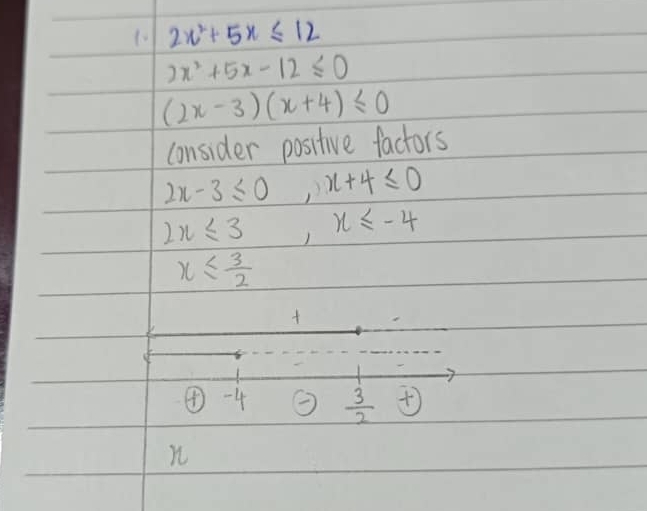 1. 2x² + 5x ≤ 12
2x² + 5x - 12 ≤ 0
(2x - 3)(x + 4) ≤ 0
Consider positive factors
2x - 3 ≤ 0 , x + 4 ≤ 0
2x ≤ 3 , x ≤ -4
x ≤ 3/2
+ -
- -
⊕ -4 ⊖ 3/2 ⊕
x